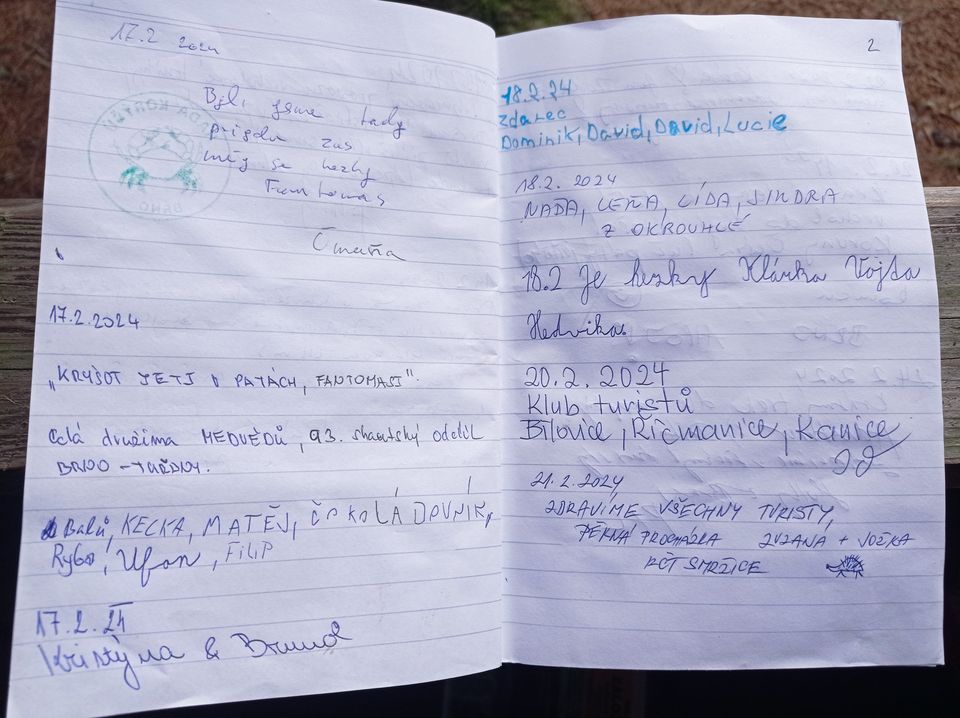 17.2 2024
Byli jsme tady
prijedu zas
měj se hezky
Fantomas
17.2.2024
"KRYŠOT JETI V PATÁCH, FANTOMASI".
Celá družina MEDVĚDŮ, 93. skautský oddíl
BRNO - TUŘANY.
Balů, KECKA, MATĚJ, ČOKOLÁDOVNÍK,
Rybo, Ufon, FILIP
17.2.24
Kristýna & Bruno
2
18.2.24
Zdarec
Dominik, David, David, Lucie
18.2. 2024
NAĎA, LEŇA, LÍDA, JINDRA
Z OKROUHLÉ
18.2 Je hezky Klárka Vojta
Hedvika
20.2.2024
Klub turistů
Bílovice, Řícmanice, Kanice
21.2.2024
ZDRAVÍME VŠECHNY TURISTY,
PĚKNÁ PROCHÁZKA ZUZANA + JOŽKA
KČT SMRŽICE